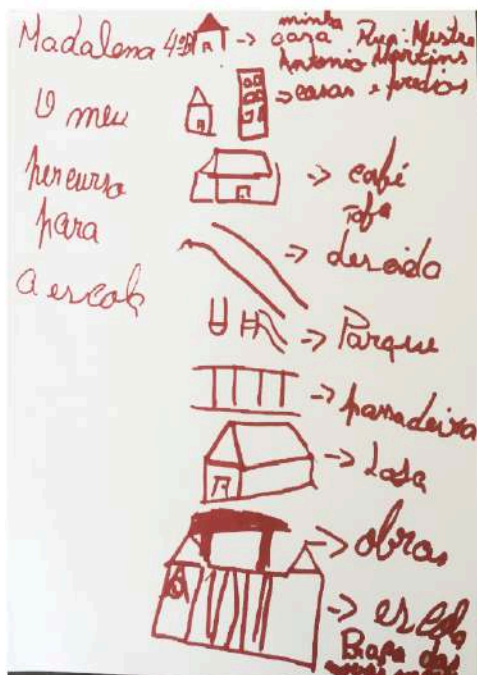 Madalena 4ºB
O meu
percurso
para
a escola
minha
casa Rua: Mestre
Antonio Martins
casas e predios
café
Tofa
descida
Parque
passadeira
Loja
obras
escola
Braga das